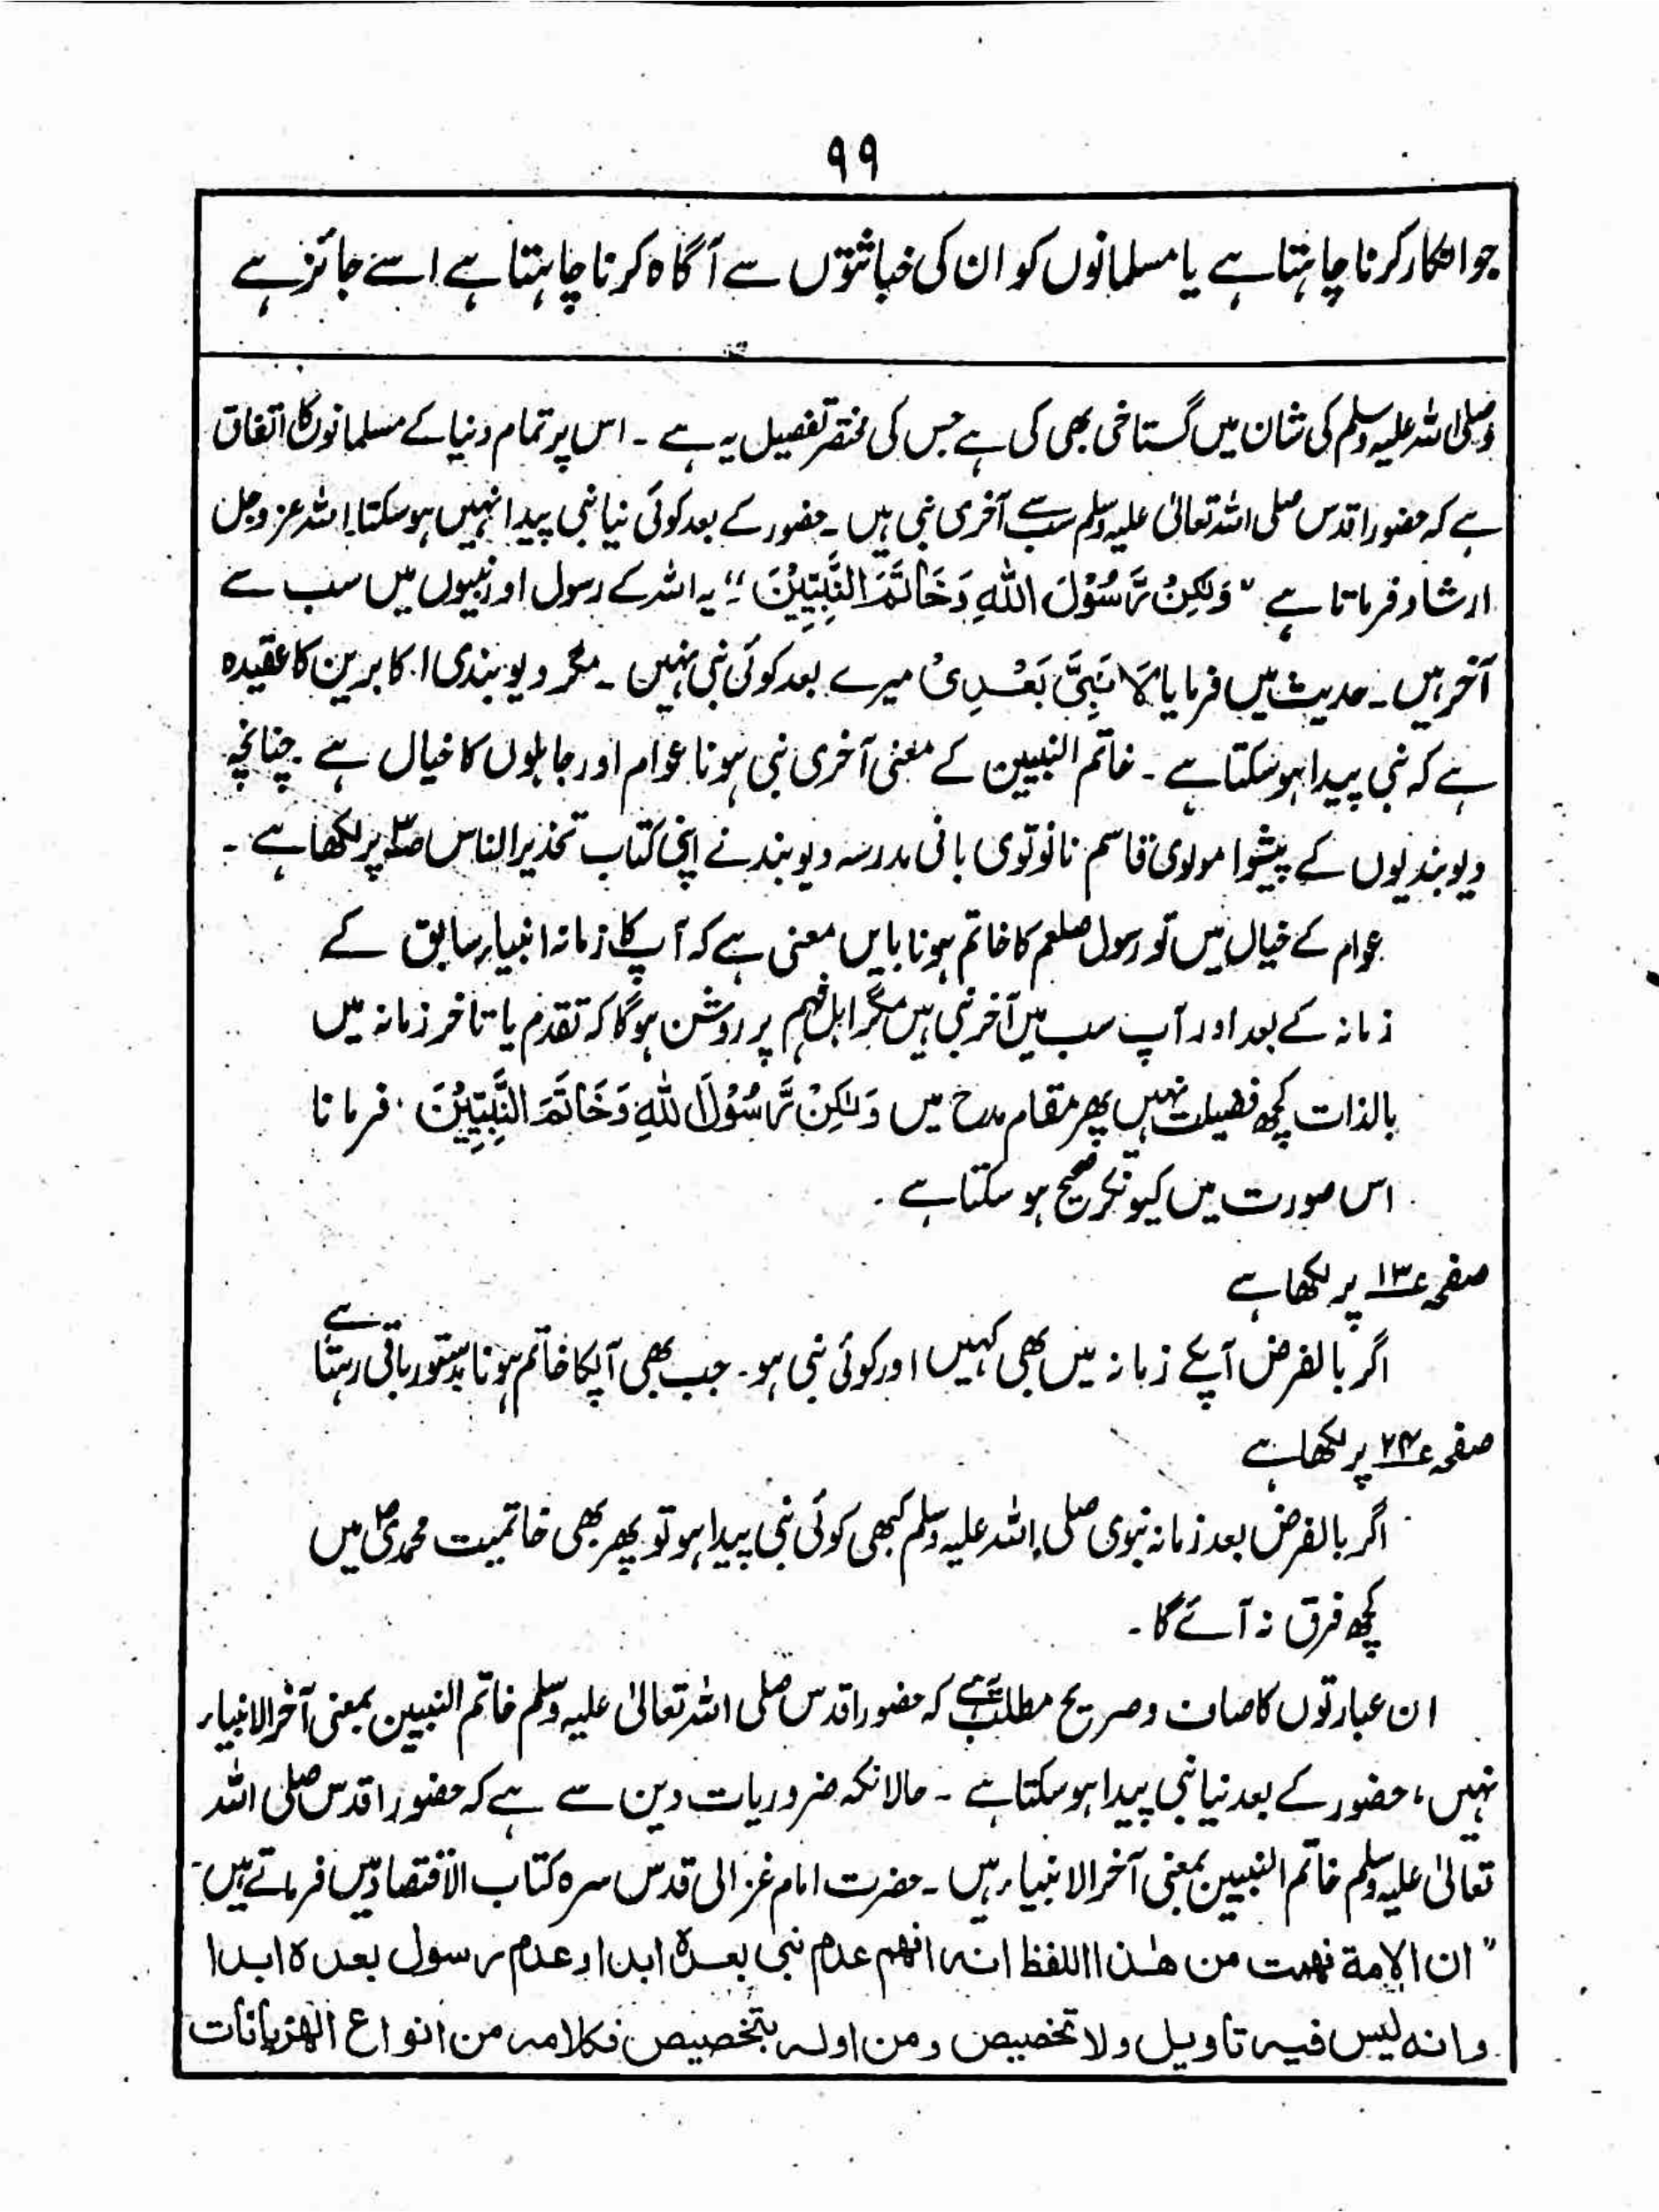 ۹۹
جو انکار کرنا چاہتا ہے یا مسلمانوں کو ان کی خباثتوں سے آگاہ کرنا چاہتا ہے اسے جائز ہے
صلی اللہ علیہ وسلم کی شان میں گستاخی بھی کی ہے جس کی مختصر تفصیل یہ ہے ۔ اس پر تمام دنیا کے مسلمانوں کا اتفاق
ہے کہ حضور اقدس صلی اللہ تعالیٰ علیہ وسلم سب سے آخری نبی ہیں ۔ حضور کے بعد کوئی نیا نبی پیدا نہیں ہو سکتا۔ اللہ عزوجل
ارشاد فرماتا ہے " وَلٰکِنْ رَّسُوْلَ اللهِ وَخَاتَمَ النَّبِیّٖنَ " یہ اللہ کے رسول اور نبیوں میں سب سے
آخر ہیں ۔ حدیث میں فرمایا لَا نَبِیَّ بَعْدِیْ میرے بعد کوئی نبی نہیں ۔ مگر دیوبندی اکابرین کا عقیدہ
ہے کہ نبی پیدا ہو سکتا ہے ۔ خاتم النبیین کے معنی آخری نبی ہونا عوام اور جاہلوں کا خیال ہے ۔ چنانچہ
دیوبندیوں کے پیشوا مولوی قاسم نانوتوی بانی مدرسہ دیوبند نے اپنی کتاب تحذیر الناس ص۳ پر لکھا ہے ۔
عوام کے خیال میں تو رسول صلعم کا خاتم ہونا بایں معنی ہے کہ آپ کا زمانہ انبیاء سابق کے
زمانہ کے بعد اور آپ سب میں آخر نبی ہیں مگر اہل فہم پر روشن ہوگا کہ تقدم یا تاخر زمانہ میں
بالذات کچھ فضیلت نہیں پھر مقام مدح میں وَلٰکِنْ رَّسُوْلَ اللهِ وَخَاتَمَ النَّبِیّٖنَ فرمانا
اس صورت میں کیونکر صحیح ہو سکتا ہے ۔
صفحہ ۱۳ پر لکھا ہے
اگر بالفرض آپ کے زمانہ میں بھی کہیں اور کوئی نبی ہو ۔ جب بھی آپکا خاتم ہونا بدستور باقی رہتا ہے
صفحہ ۲۴ پر لکھا ہے
اگر بالفرض بعد زمانہ نبوی صلی اللہ علیہ وسلم کبھی کوئی نبی پیدا ہو تو پھر بھی خاتمیت محمدیؐ میں
کچھ فرق نہ آئے گا ۔
ان عبارتوں کا صاف و صریح مطلب یہ ہے کہ حضور اقدس صلی اللہ تعالیٰ علیہ وسلم خاتم النبیین بمعنی آخر الانبیاء
نہیں، حضور کے بعد نیا نبی پیدا ہو سکتا ہے ۔ حالانکہ ضروریات دین سے ہے کہ حضور اقدس صلی اللہ
تعالیٰ علیہ وسلم خاتم النبیین بمعنی آخر الانبیاء ہیں ۔ حضرت امام غزالی قدس سرہ کتاب الاقتصاد میں فرماتے ہیں ۔
" ان الامة فهمت من هٰذا اللفظ انه افهم عدم نبی بعدہ ابدا و عدم رسول بعدہ ابدا
وانه لیس فیه تاویل ولا تخصیص ومن اوله بتخصیص فکلامه من انواع الهزیانات